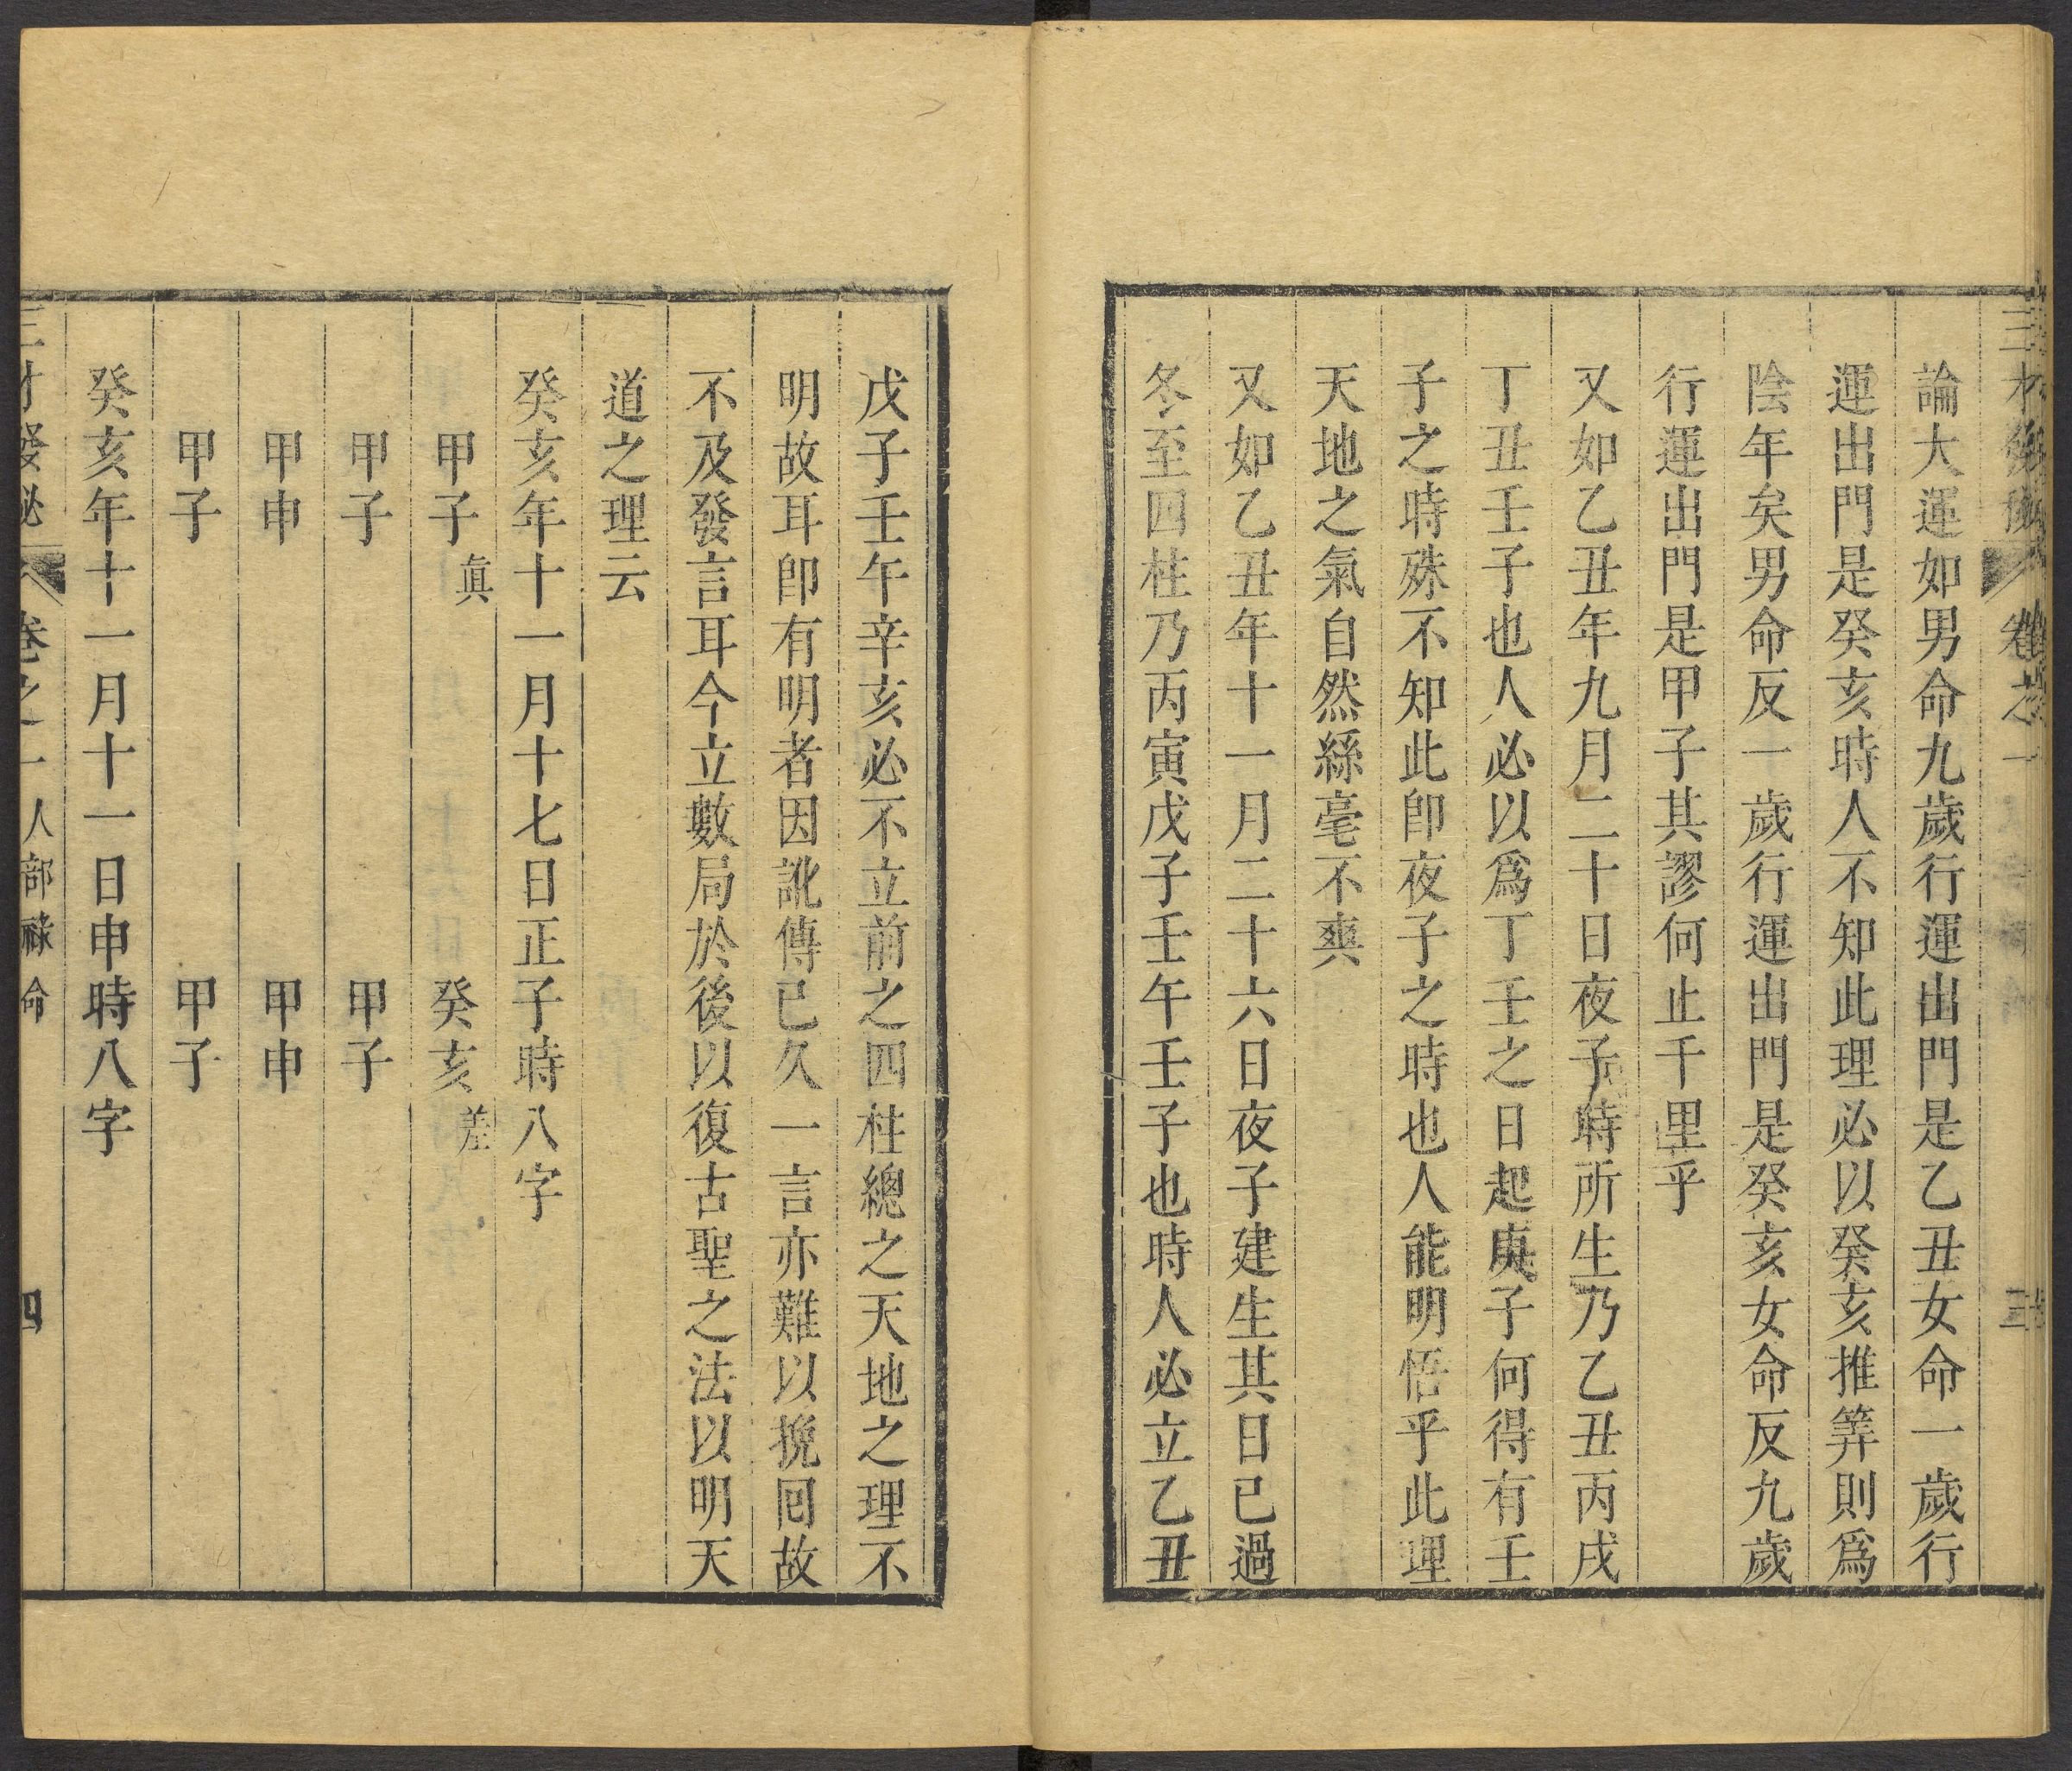 論大運如男命九歲行運出門是乙丑女命一歲行
運出門是癸亥時人不知此理必以癸亥推筭則爲
陰年矣男命反一歲行運出門是癸亥女命反九歲
行運出門是甲子其謬何止千里乎
又如乙丑年九月二十日夜子時所生乃乙丑丙戌
丁丑壬子也人必以爲丁壬之日起庚子何得有壬
子之時殊不知此卽夜子之時也人能明悟乎此理
天地之氣自然絲毫不爽
又如乙丑年十一月二十六日夜子建生其日已過
冬至四柱乃丙寅戊子壬午壬子也時人必立乙丑
戊子壬午辛亥必不立前之四柱總之天地之理不
明故耳卽有明者因訛傳已久一言亦難以挽囘故
不及發言耳今立數局於後以復古聖之法以明天
道之理云
癸亥年十一月十七日正子時八字
甲子眞 癸亥差
甲子 甲子
甲申 甲申
甲子 甲子
癸亥年十一月十一日申時八字
三才發秘 卷之一 人部祿命 四